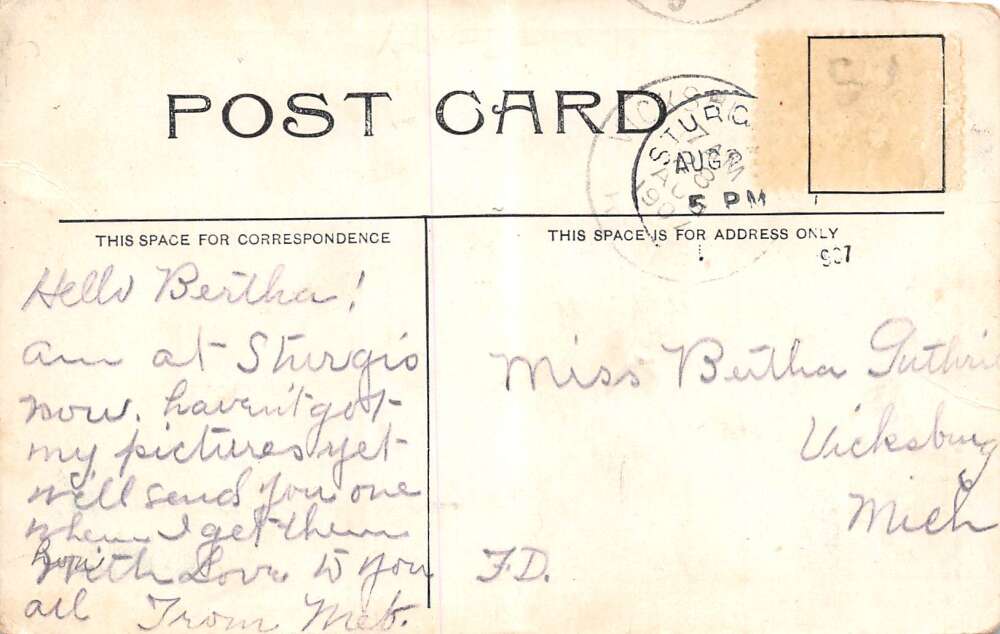 POST CARD
VICKSB
STURG
AUG 2
5 PM
1907
907
THIS SPACE FOR CORRESPONDENCE
THIS SPACE IS FOR ADDRESS ONLY
Hello Bertha!
am at Sturgis
now. haven't got
my pictures yet
will send you one
when I get them
With Love to you
all From Meb.
Miss Bertha Guthri
Vicksburg
Mich
F.D.